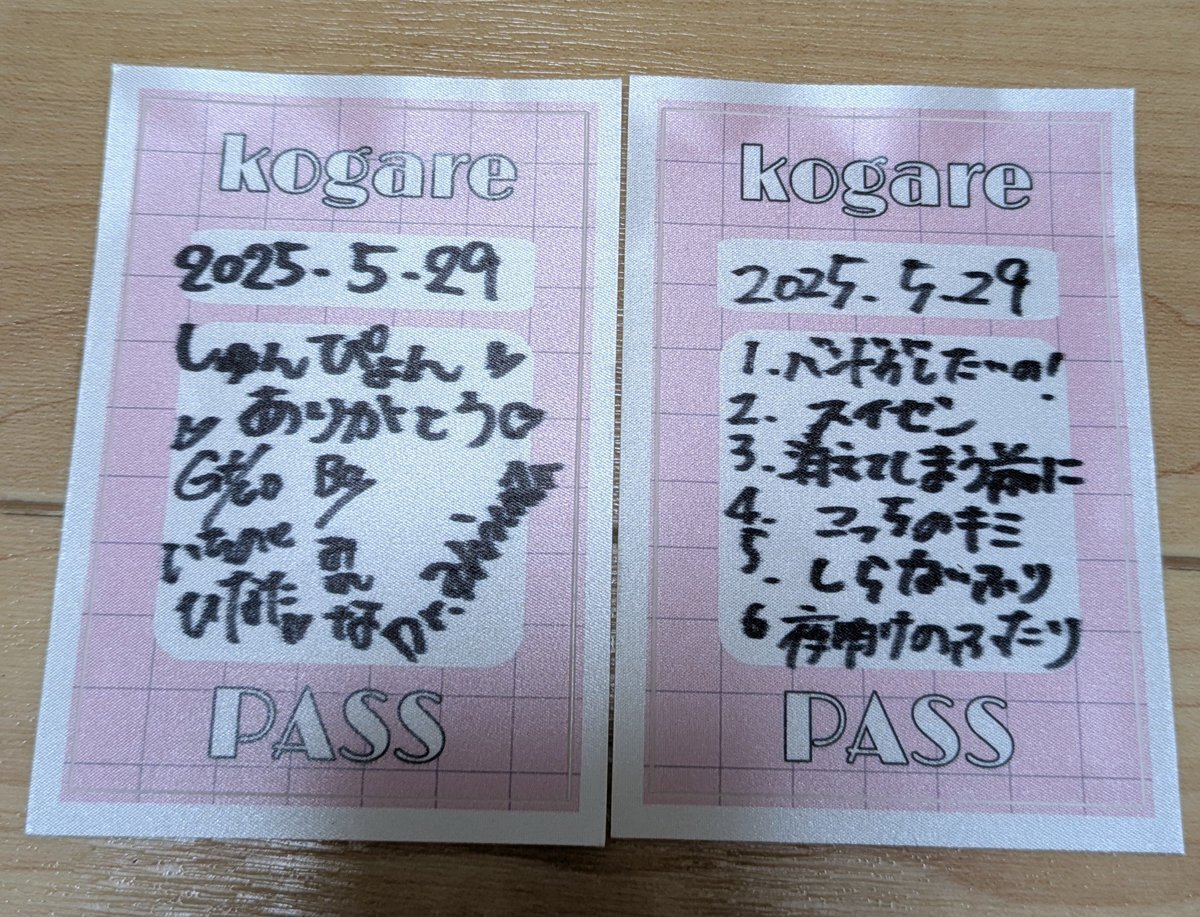 kogare
2025.5.29
しゅんぴょん
ありがとう
Gt/Vo Ba
ひなた みんな Dr.
PASS
kogare
2025.5.29
1.バンドがしたーの!
2. スイセン
3.消えてしまう前に
4. こっちのキミ
5. しらないふり
6 夜明けのふたり
PASS